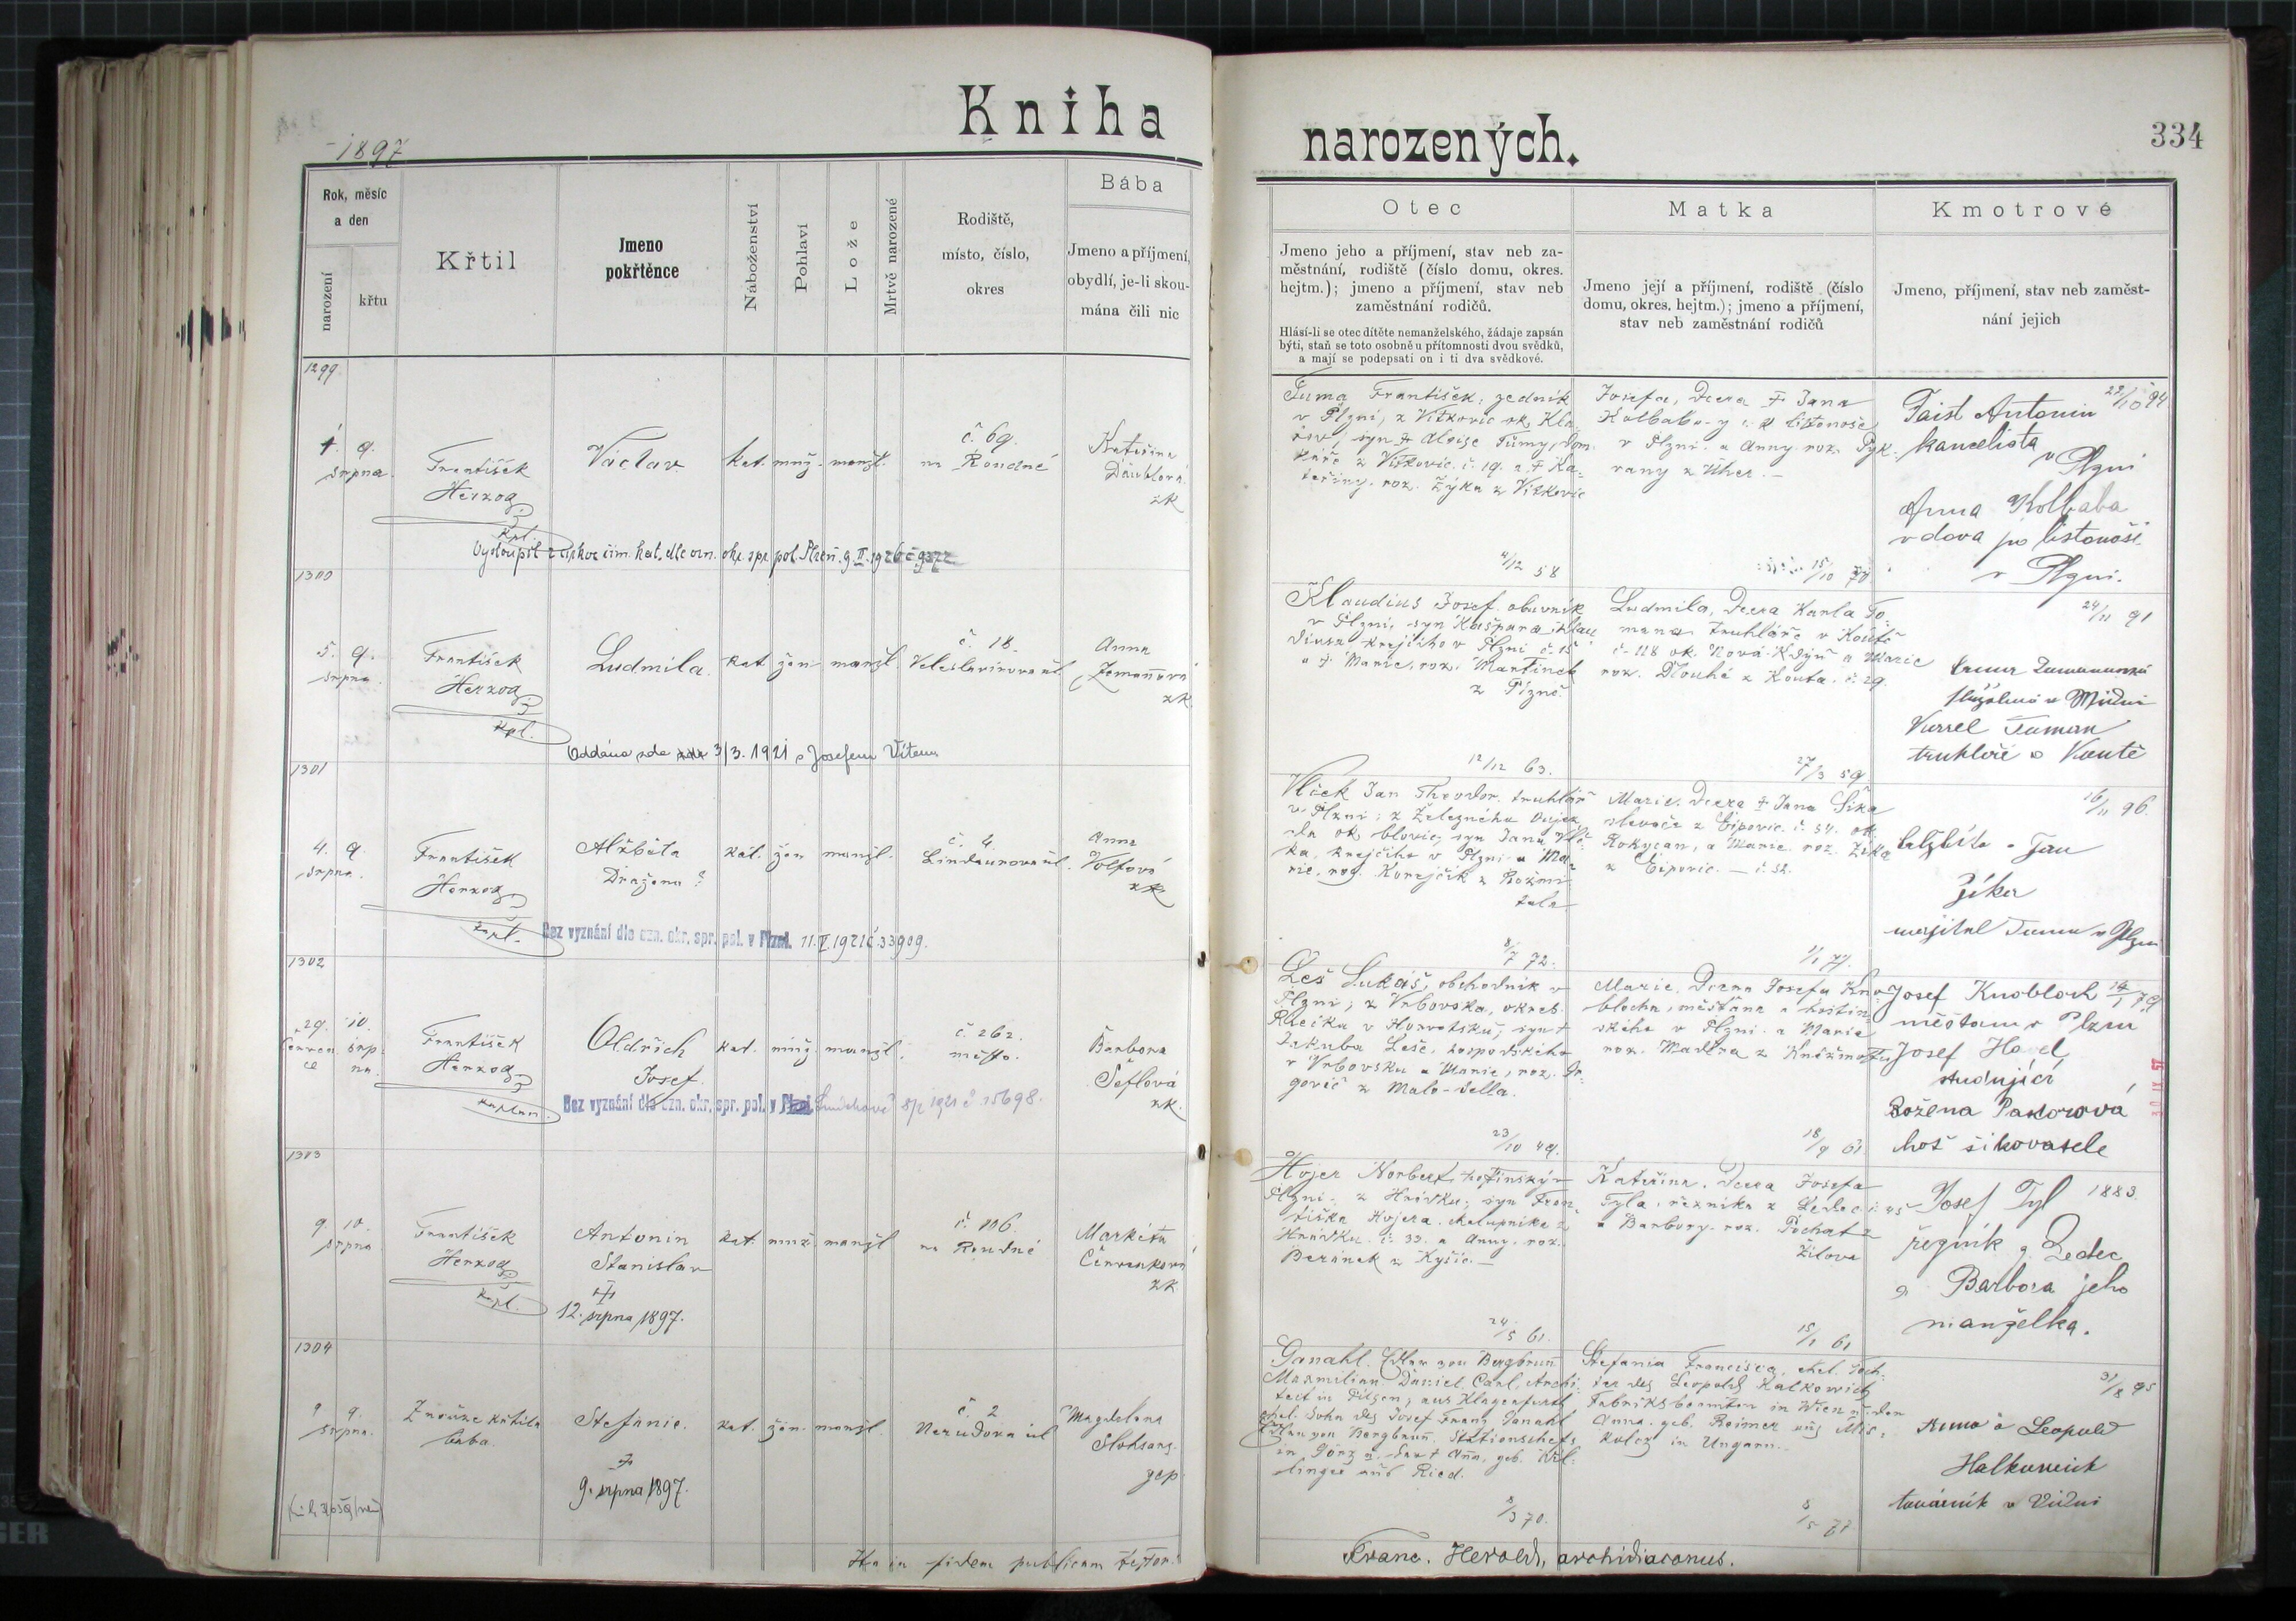 Kniha
narozených.
334
1897
Rok, měsíc
a den
narození
křtu
Křtil
Jmeno
pokřtěnce
Náboženství
Pohlaví
Lože
Mrtvě narozené
Rodiště,
místo, číslo,
okres
Bába
Jmeno a příjmení,
obydlí, je-li skou-
mána čili nic
Otec
Jmeno jeho a příjmení, stav neb za-
městnání, rodiště (číslo domu, okres.
hejtm.); jmeno a příjmení, stav neb
zaměstnání rodičů.
Hlásí-li se otec dítěte nemanželského, žádaje zapsán
býti, staň se toto osobně u přítomnosti dvou svědků,
a mají se podepsati on i ti dva svědkové.
Matka
Jmeno její a příjmení, rodiště (číslo
domu, okres. hejtm.); jmeno a příjmení,
stav neb zaměstnání rodičů
Kmotrové
Jmeno, příjmení, stav neb zaměst-
nání jejich
1299
9.
srpna
František
Herzog
kpl.
Václav
kat. muž. manžl.
č. 69.
na Roudné
Kateřina
zk
Vystoupil z církve řím. kat. dle ozn. okr. spr. pol. Plzeň 9. II. 1926
Tuma František, zedník
v Plzni, z Vítkovic ok. Kla
tov, syn † Aloise Tůmy, dom
káře z Vítkovic č. 19. a † Ka-
teřiny roz. Zýka z Vítkovic
4/12 58
Josefa, dcera † Jana
v Plzni a Anny roz. Pyk.
rany z Uher. —
15/10
Faist Antonín
kancelista
v Plzni
Anna Kolbaba
vdova po listonoši
v Plzni.
1300
5. 9.
srpna.
František
Herzog
kpl.
Ludmila.
kat. žen. manžl.
č. 18.
Veleslavínova ul.
Anna
Zemanová
zk.
Oddána zde 3/3. 1921 s Josefem Vítem
Klaudius Josef, obuvník
v Plzni, syn Kašpara Klau
diusa krejčího v Plzni č. 15
a † Marie, roz. Martínek
z Plzně.
12/12 63.
Ludmila, dcera Karla To-
mana truhláře v Koutě
č. 118 ok. Nová Kdýň a Marie
roz. Dlouhé z Kouta. č. 29.
27/3 59
24/11 91
Karel Toman
truhlář v Koutě
1301
4. 9.
srpna.
František
Herzog
kpl.
Alžběta
Dražena
kat. žen manžl.
č. 4.
Lindaurova ul.
Anna
Volfová
zk
Bez vyznání dle ozn. okr. spr. pol. v Plzni. 11. V. 1921 č. 33909.
Vlček Jan Theodor, truhlář
v Plzni; z Železného Újez
da ok. Blovic, syn Jana Vlč-
ka, krejčího v Plzni a Ma-
rie, roz. Korejčík z Rožmi-
tála
8/7 72.
Marie, dcera † Jana Šíka
slevače z Ejpovic č. 54. ok.
Rokycan, a Marie roz. Zíka
z Ejpovic. — č. 32.
16/11 96.
Alžběta a Jan
Zíka
majitel domu v Plzni
1302
29. 10.
červen srp-
ce na.
František
Herzog
kaplan.
Oldřich
Josef.
kat. muž. manžl.
č. 262
město.
Barbora
Šeflová
zk.
Bez vyznání dle ozn. okr. spr. pol. v 8/2 1921 č. 15698.
Leš Lukáš, obchodník v
Plzni; z Vrbovska, okres.
Riečka v Horvatsku, syn †
Jakuba Leše, hospodského
v Vrbovsku a Marie, roz. Gr-
govič z Malo-sella.
23/10 49.
Marie, dcera Josefa Kno-
blocha, měšťana a hostin-
ského v Plzni a Marie
18/9 61.
Josef Knobloch
měšťan v Plzni
Josef Havel
studující
Božena Pastorová
choť šikovatele
1303
9. 10.
srpna
František
Herzog
kpl.
Antonín
Stanislav
†
12. srpna 1897.
kat. muž. manžl
č. 106
na Roudné
Markéta
Červenková
zk
Hojer Norbert, hostinský v
Plzni, z Hrádku, syn Fran
tiška Hojera, chalupníka z
Hrádku č. 33. a Anny roz.
Beránek z Kyšic. —
24/5 61.
Kateřina, dcera Josefa
Tyla, řezníka z Ledec č. 45
a Barbory roz. Pochat z
Žilova
15/1 61
1883.
Josef Tyl
řezník z Ledec
a Barbora jeho
manželka.
1304
9. 9.
srpna.
Z nouze křtila
bába.
Stefanie.
†
9. srpna 1897.
kat. žen. manžl.
č. 2
Nerudova ul
Magdalena
Ganahl, Edler von Bergbrunn
Maxmilian Daniel Carl, Archi-
tect in Pilsen, aus Klagenfurt,
ehel. Sohn des Josef Franz Ganahl,
Edlen von Bergbrunn, Stationschefs
in Görz u. der † Anna, geb. Wil-
linger aus Ried.
8/3 70.
Stefania Francisca, ehel. Toch-
ter des Leopold Kalkowich
Fabriksbeamten in Wien u. der
Anna geb. Reimer aus Mis-
kolcz in Ungarn.
8/5 77
31/8 95
Anna a Leopold
továrník v Vídni
Ita in fidem publicam testor:
Franc. Herold, archidiaconus.